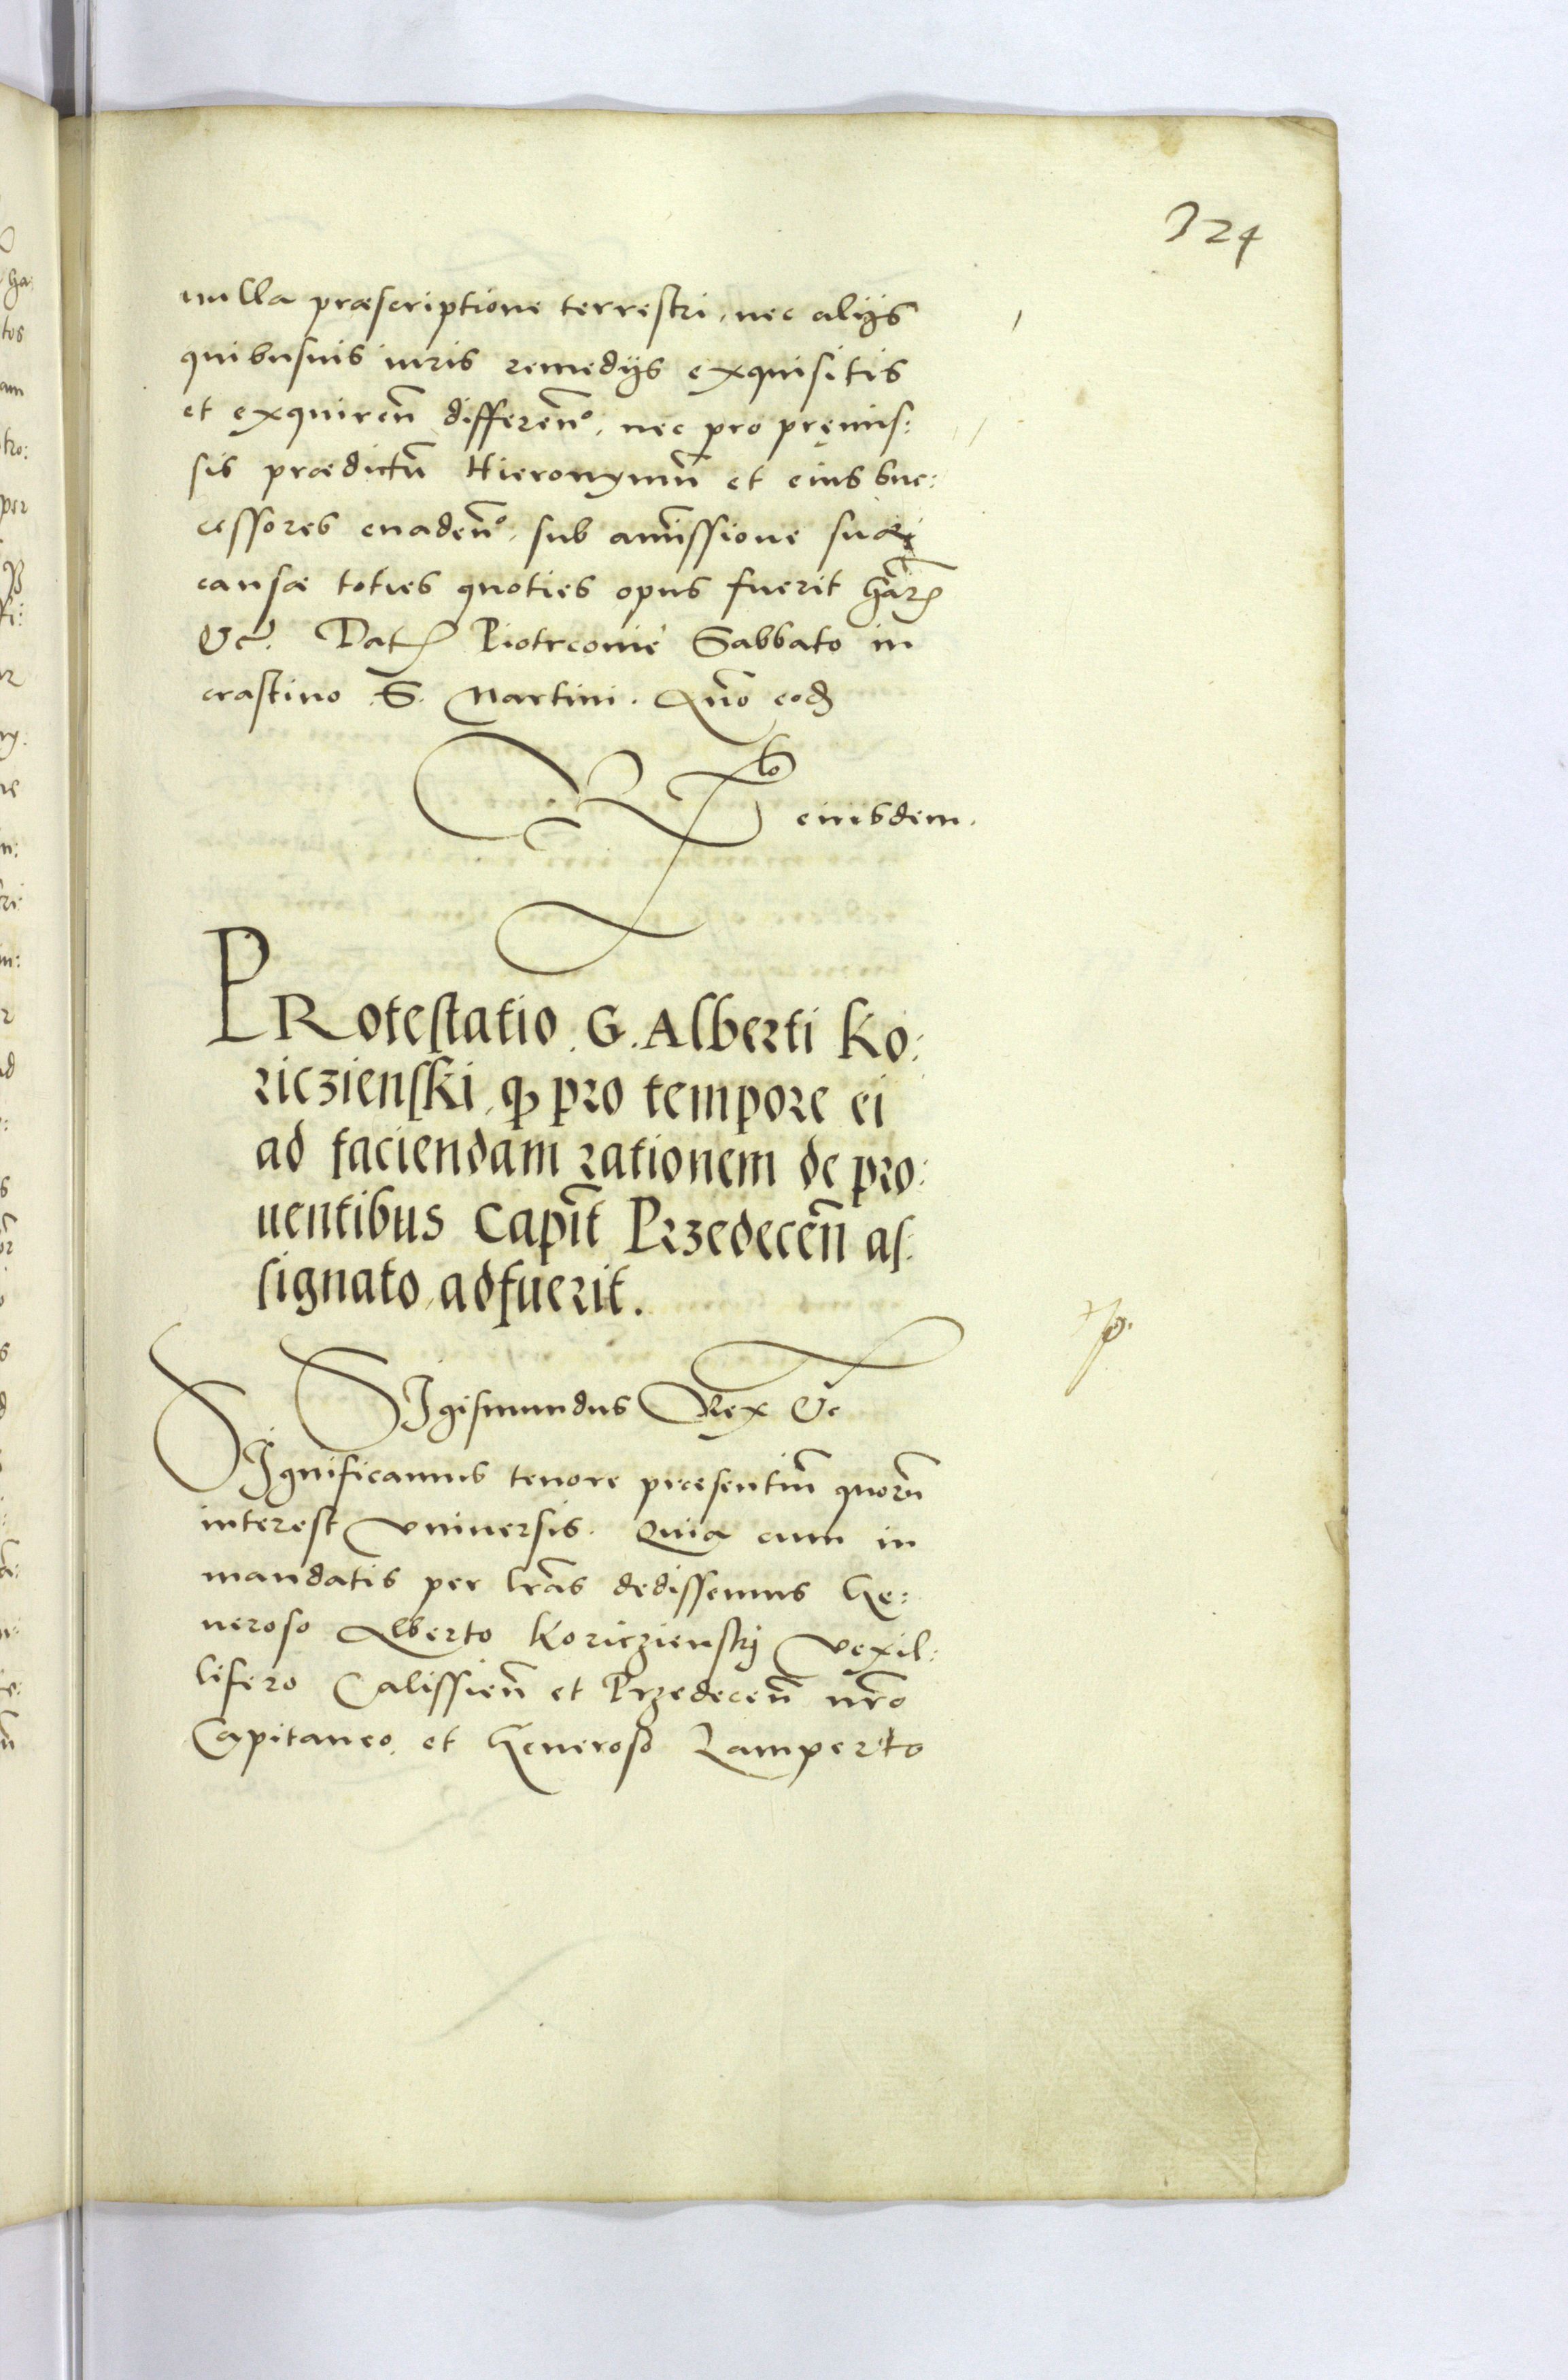 324
nulla præscriptione terrestri, nec alijs
quibusuis iuris remedijs exquisitis
et exquireñ differeñº, nec pro pręmis:
sis prædictũ Hieronymũ et eius suc:
cessores euadeñº, sub amĩssione suæ
causæ toties quoties opus fuerit
&c. Dat Piotrconie Sabbato in
crastino S. Martini. Añno eod
eiusdem.
PRotestatio G. Alberti Ko:
riczienski, ꝙ pro tempore ei
ad faciendam rationem de pro:
uentibus Capit̃ Przedeceñ as:
signato, adfuerit.
Sigismundus Rex &c
Significamus tenore præsentiũ quorũ
interest vniuersis. Quia cum in
mandatis per lr̃as dedissemus Ge:
neroso Alberto Koriczienskj vexil:
lifero Calissieñ et Przedeceñ nr̃o
Capitaneo, et Generoso Lamperto